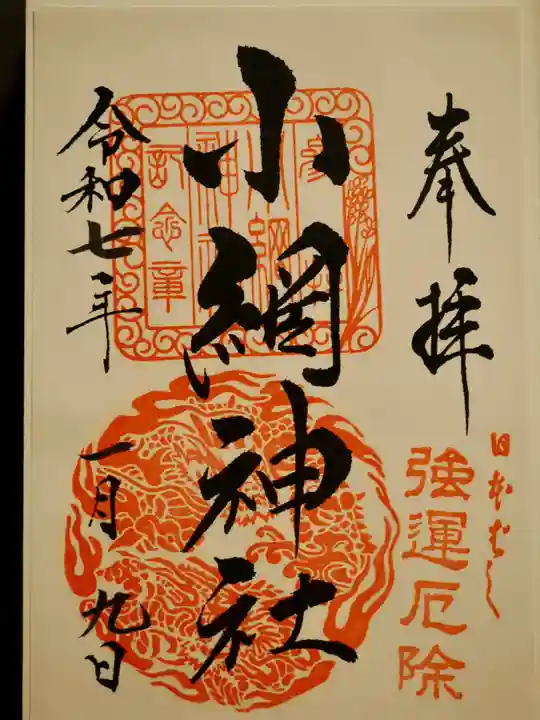 奉拝
日本ばし
強運厄除
小網神社
参拝
小網
神社
記念章
令和七年
一月九日